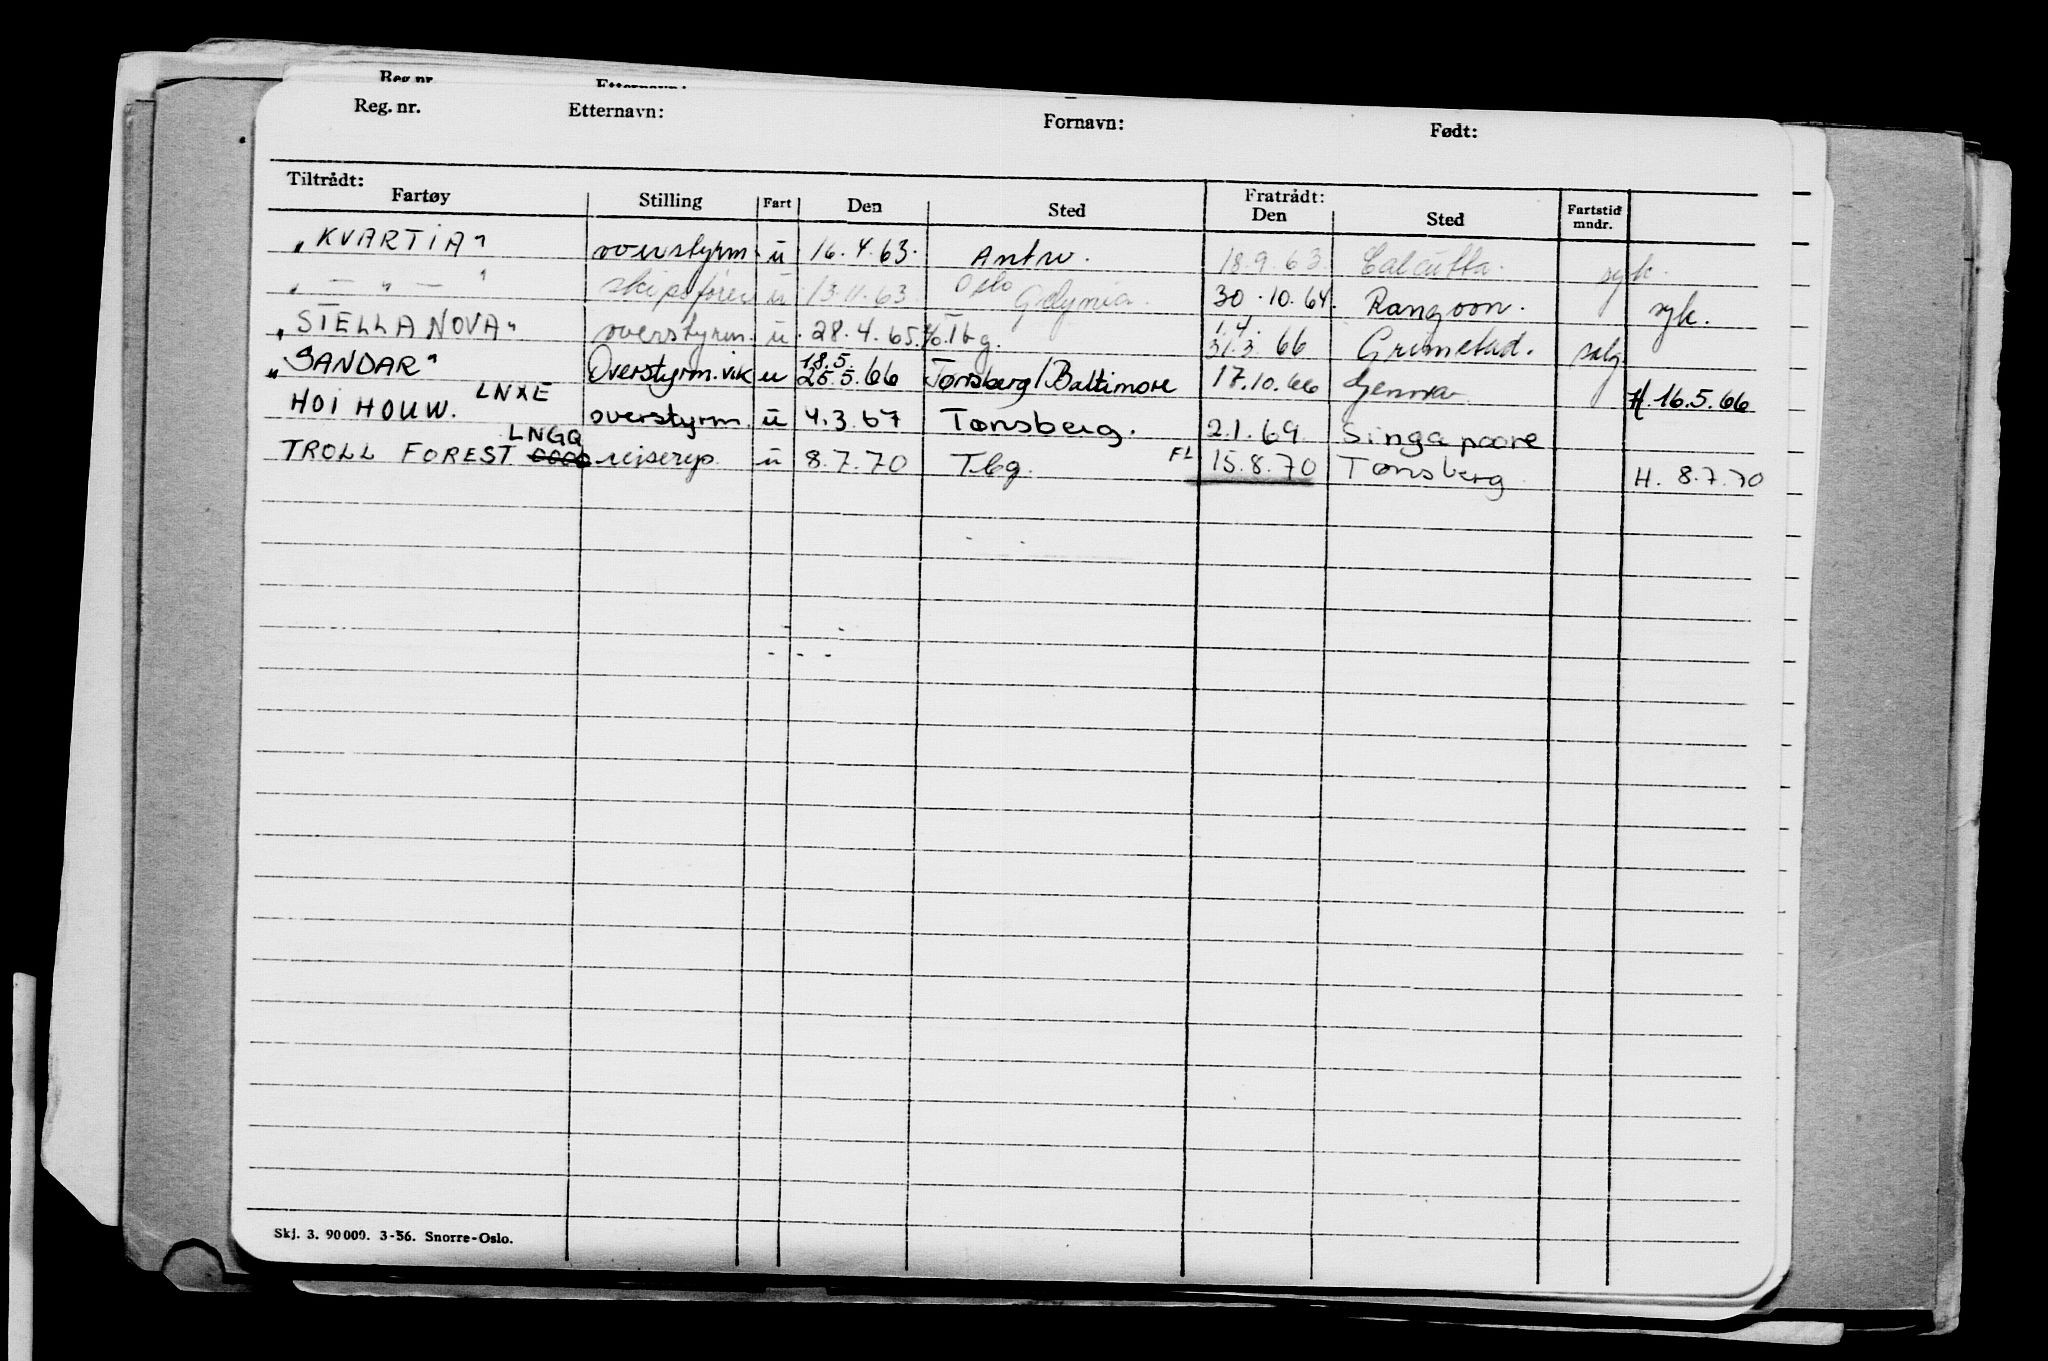 Reg. nr. Etternavn:
Reg. nr. Etternavn: Fornavn: Født:
Tiltrådt: Fratrådt:
Fartøy Stilling Fart Den Sted Den Sted Fartstid mndr.
"KVARTIA" overstyrm. u 16.4.63. Antw. 18.9.63. Calcutta. syk.
" — " — " skipsfører u 13.11.63. Oslo Gdynia. 30.10.64. Rangoon. syk.
"STELLA NOVA" overstyrm. u. 28.4.65. Tbg. 1.4. 31.3.66 Grimstad. salg
"SANDAR" Overstyrm. vik u 18.5. 25.5.66 Tønsberg/Baltimore 17.10.66 Genova H. 16.5.66
HOI HOUW. LNXE overstyrm. u 4.3.67 Tønsberg. 2.1.69. Singapoore
TROLL FOREST LNGQ reiserep. u 8.7.70 Tbg. FL 15.8.70 Tønsberg H. 8.7.70
Skj. 3. 90 000. 3-56. Snorre-Oslo.